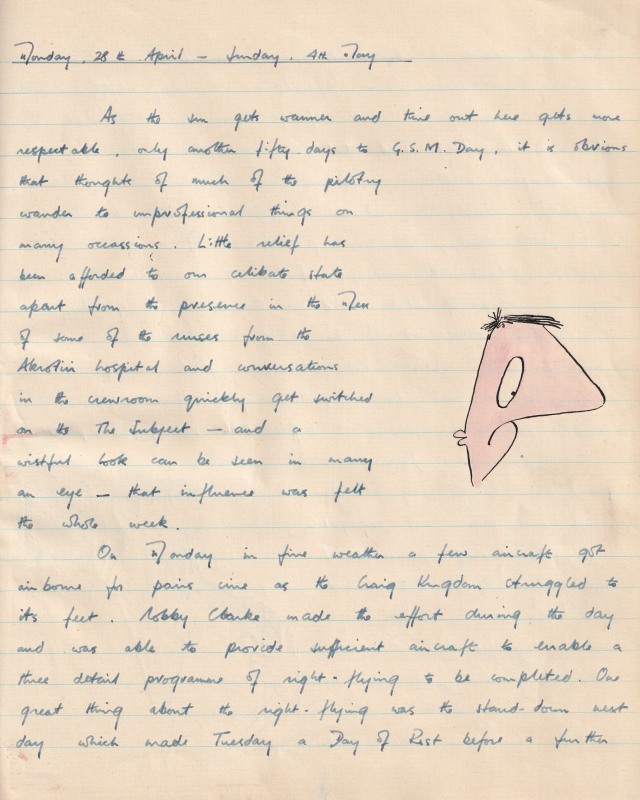 Monday, 28th April - Sunday, 4th May
As the sun gets warmer and time out here gets more
respectable, only another fifty days to G.S.M. Day, it is obvious
that thoughts of much of the pilotry
wander to unprofessional things on
many occassions. Little relief has
been afforded to our celibate state
apart from the presence in the Mess
of some of the nurses from the
Akrotiri hospital and conversations
in the crewroom quickly get switched
on to The Subject - and a
wistful look can be seen in many
an eye - that influence was felt
the whole week.
On Monday in fine weather a few aircraft got
airborne for pairs cine as the Craig Kingdom struggled to
its feet. Nobby Clarke made the effort during the day
and was able to provide sufficient aircraft to enable a
three detail programme of night-flying to be completed. One
great thing about the night-flying was the stand-down next
day which made Tuesday a Day of Rest before a further